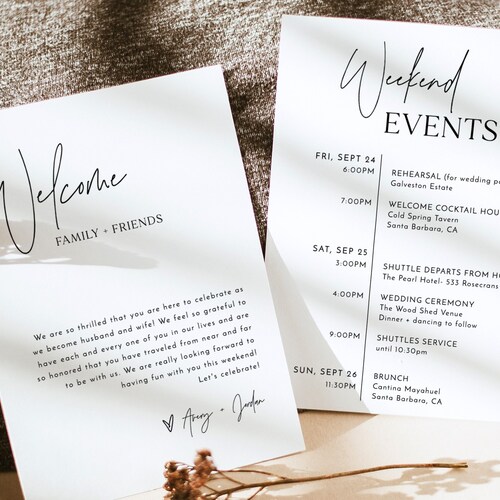 Welcome
FAMILY + FRIENDS
We are so thrilled that you are here to celebrate as
we become husband and wife! We feel so grateful to
have each and every one of you in our lives and are
so honored that you have traveled from near and far
to be with us. We are really looking forward to
having fun with you this weekend!
Let's celebrate!
Avery + Jordan
Weekend
EVENTS
FRI, SEPT 24
6:00PM
REHEARSAL (for wedding
Galveston Estate
7:00PM
WELCOME COCKTAIL HOU
Cold Spring Tavern
Santa Barbara, CA
SAT, SEP 25
3:00PM
SHUTTLE DEPARTS FROM
The Pearl Hotel- 533 Rosecrans
4:00PM
WEDDING CEREMONY
The Wood Shed Venue
Dinner + dancing to follow
9:00PM
SHUTTLES SERVICE
until 10:30pm
SUN, SEPT 26
11:30PM
BRUNCH
Cantina Mayahuel
Santa Barbara, CA